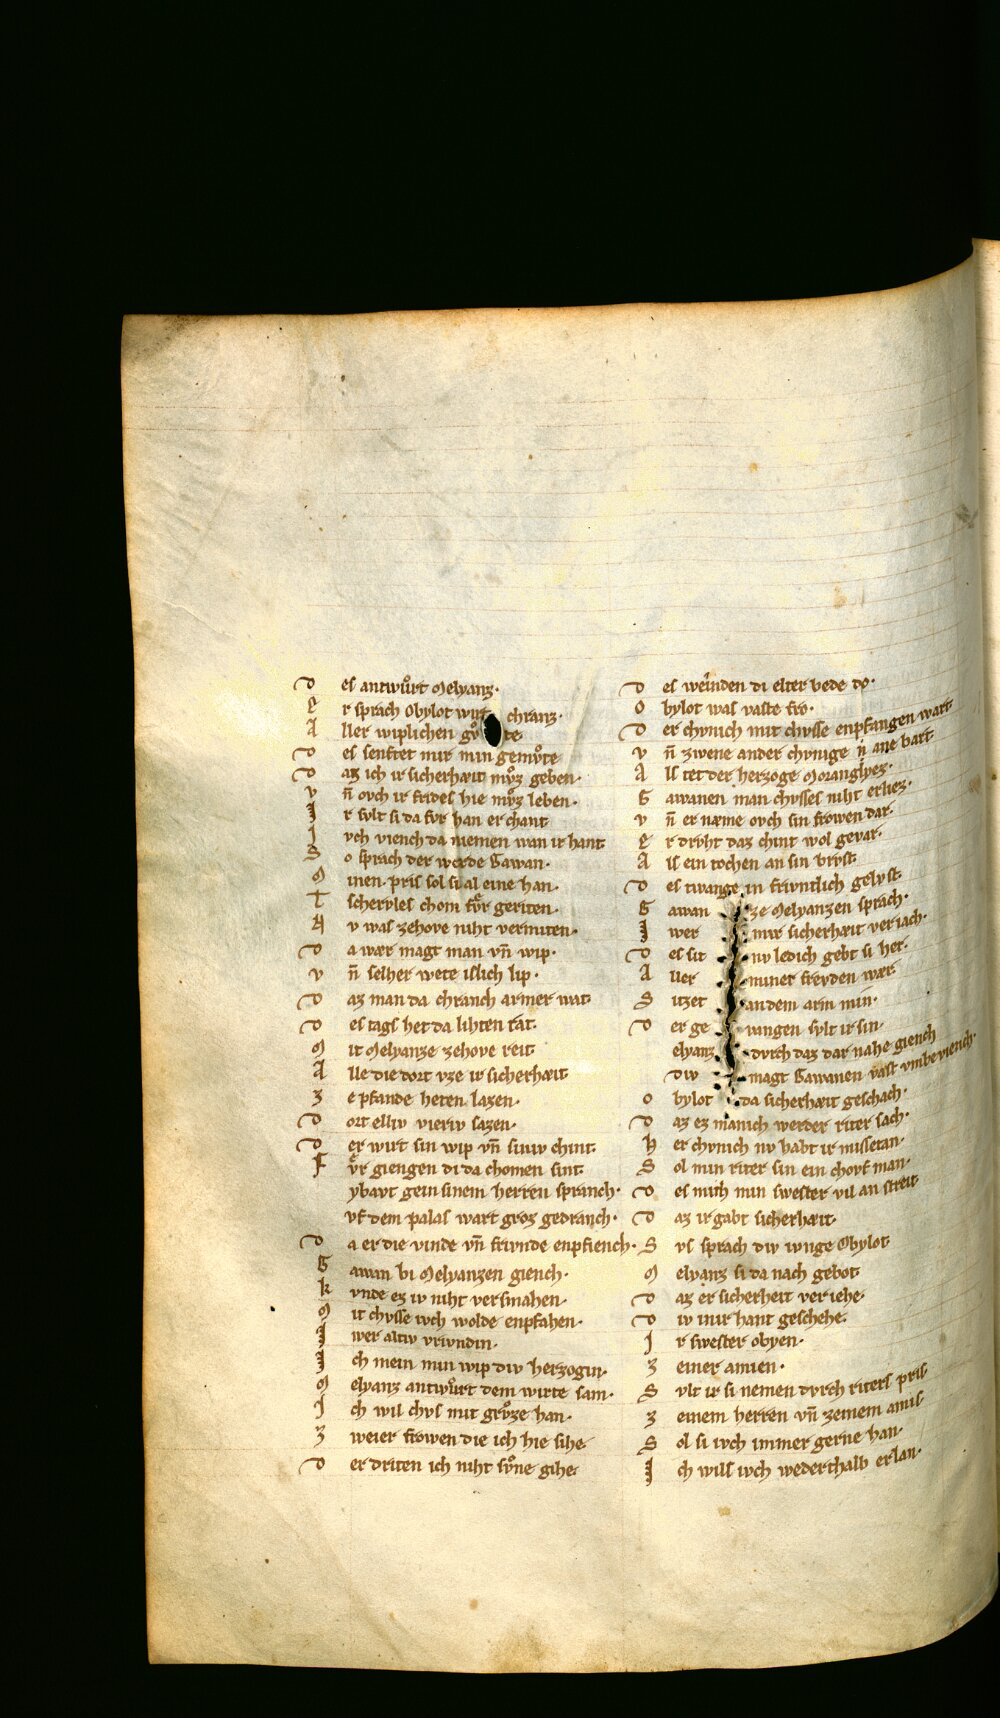 D es antwuͦrt Melyanz·
E r sprach Obylot wirt chranz·
A ller wiplichen guͦte
D es senftet mir min gemuͦte
D az ich ir sicherhæit muͦz geben·
V n̄ ovch ir frides hie muͦz leben·
I r sylt si da fvr han erchant
I vch viench da niemen wan ir hant
S o sprach der werde Gawan·
M inen pris sol si al eine han·
T schervles chom fvͤr geriten·
N v was zehove niht vermiten·
D a wær magt man vn̄ wip·
V n̄ selher wete islich lip·
D az man da chranch armer wat
D es tags het da lihten rat·
M it Melyanze zehove reit
A lle die dort vze ir sicherhæit
Z e pfande heten lazen·
D ort elliv vieriv sazen·
D er wirt sin wip vn̄ siniv chint
F vͤr giengen di da chomen sint
ybavt gein sinem herren spranch·
vf dem palas wart groz gedranch·
D a er die vinde vn̄ frivnde enpfiench·
G awan bi Melyanzen giench·
K vnde ez iv niht versmahen·
M it chvsse ivch wolde enpfahen·
I wer altiv vrivndin·
I ch mein min wip div herzogin·
M elyanz antwuͦrt dem wirte sam·
I ch wil chvs mit gruͦze han·
Z weier frowen die ich hie sihe
D er driten ich niht suͦne gihe·
D es weinden di elter bede do·
O bylot was vaste fro·
D er chvnich mit chvsse enpfangen wart
V n̄ zwene ander chvnige n̄ ane bart
A ls tet der herzoge Morangliez·
G awanen man chvsses niht erliez·
V n̄ er næme ovch sin frowen dar·
E r drvht daz chint wol gevar·
A ls ein tochen an sin brvst
D es twange in frivntlich gelvst
G awan ze Melyanzen sprach·
I wer mir sicherhæit veriach·
D es sit nv ledich gebt si her·
A ller miner freyden wær
S itzet an dem arm min·
D er ge vangen sylt ir sin·
elyanz dvrch daz dar nahe giench
div magt Gawanen vast vmbeviench·
O bylot da sicherhæit geschach·
D az ez manich werder riter sach·
H er chvnich nv habt ir missetan·
S ol min riter sin ein chovf man·
D es mich min swester vil an streit
D az ir gabt sicherhæit·
S vs sprach div ivnge Obylot
M elyanz si da nach gebot
D az er sicherheit veriehe·
D iv inir hant geschehe·
I r swester obyen·
Z einer amien·
S vlt ir si nemen dvrch riters pris
Z einem herren vn̄ zeinem amis
S ol si ivch immer gerne han·
I ch wills ivch wederthalb erlan·